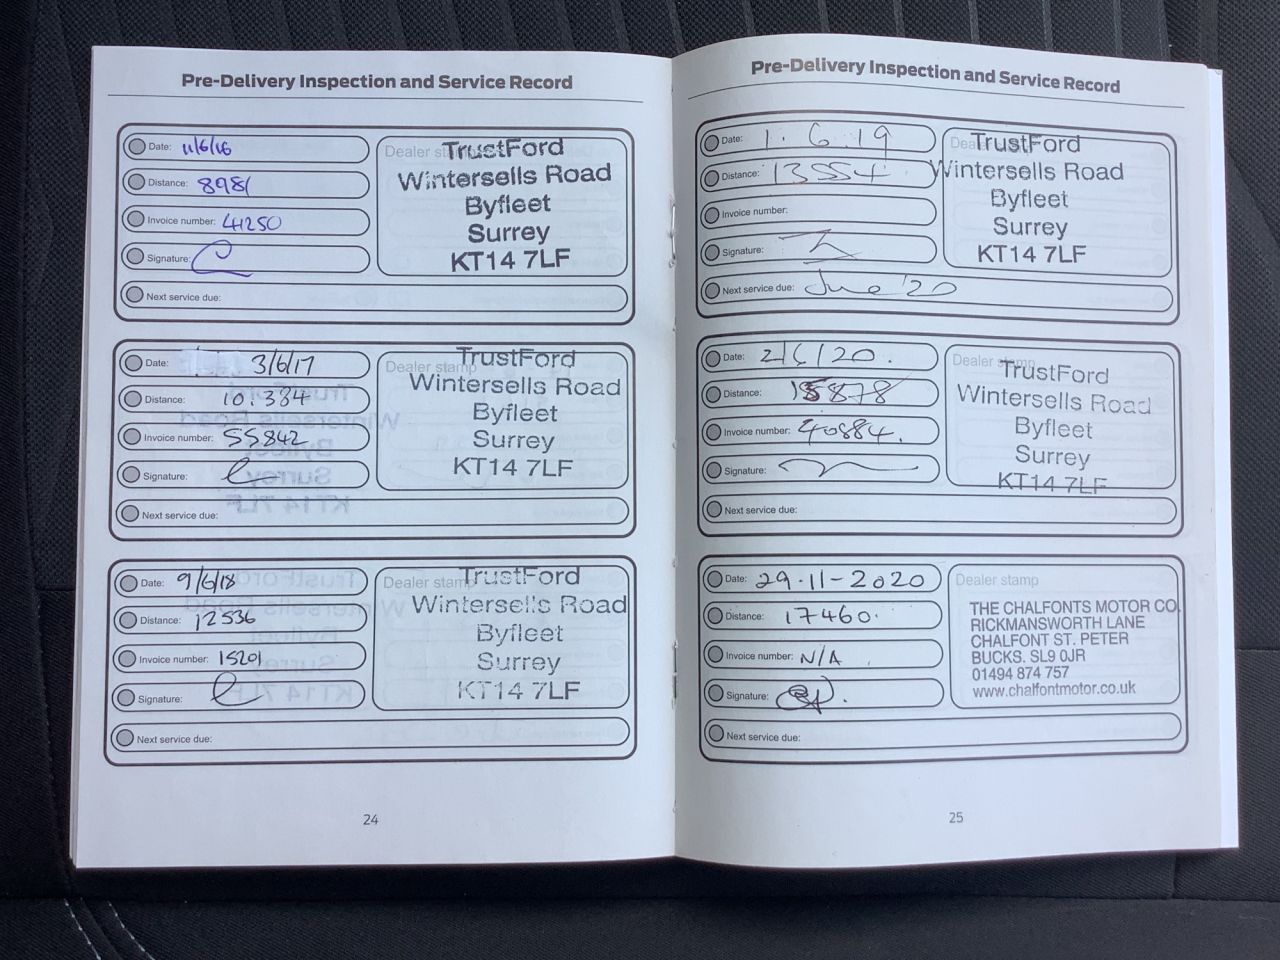 Pre-Delivery Inspection and Service Record
Date: 11/6/16
Distance: 8981
Invoice number: 41250
Signature:
Next service due:
Dealer stamp
TrustFord
Wintersells Road
Byfleet
Surrey
KT14 7LF
Date: 3/6/17
Distance: 10.334
Invoice number: 55842
Signature:
Next service due:
Dealer stamp
TrustFord
Wintersells Road
Byfleet
Surrey
KT14 7LF
Date: 9/6/18
Distance: 12536
Invoice number: 15201
Signature:
Next service due:
Dealer stamp
TrustFord
Wintersells Road
Byfleet
Surrey
KT14 7LF
24
Pre-Delivery Inspection and Service Record
Date: 1.6.19
Distance: 13554
Invoice number:
Signature:
Next service due: June '20
TrustFord
Wintersells Road
Byfleet
Surrey
KT14 7LF
Date: 2/6/20.
Distance: 15878
Invoice number: 40884.
Signature:
Next service due:
Dealer stamp
TrustFord
Wintersells Road
Byfleet
Surrey
KT14 7LF
Date: 29.11-2020
Distance: 17460.
Invoice number: N/A
Signature:
Next service due:
Dealer stamp
THE CHALFONTS MOTOR CO.
RICKMANSWORTH LANE
CHALFONT ST. PETER
BUCKS. SL9 0JR
01494 874 757
www.chalfontmotor.co.uk
25